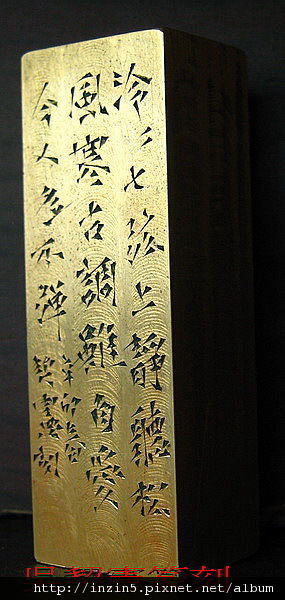 泠〻七弦上靜聽松
風寒古調雖自愛
今人多不彈
辛卯
契寰刻
http://inzin5.pixnet.net/album